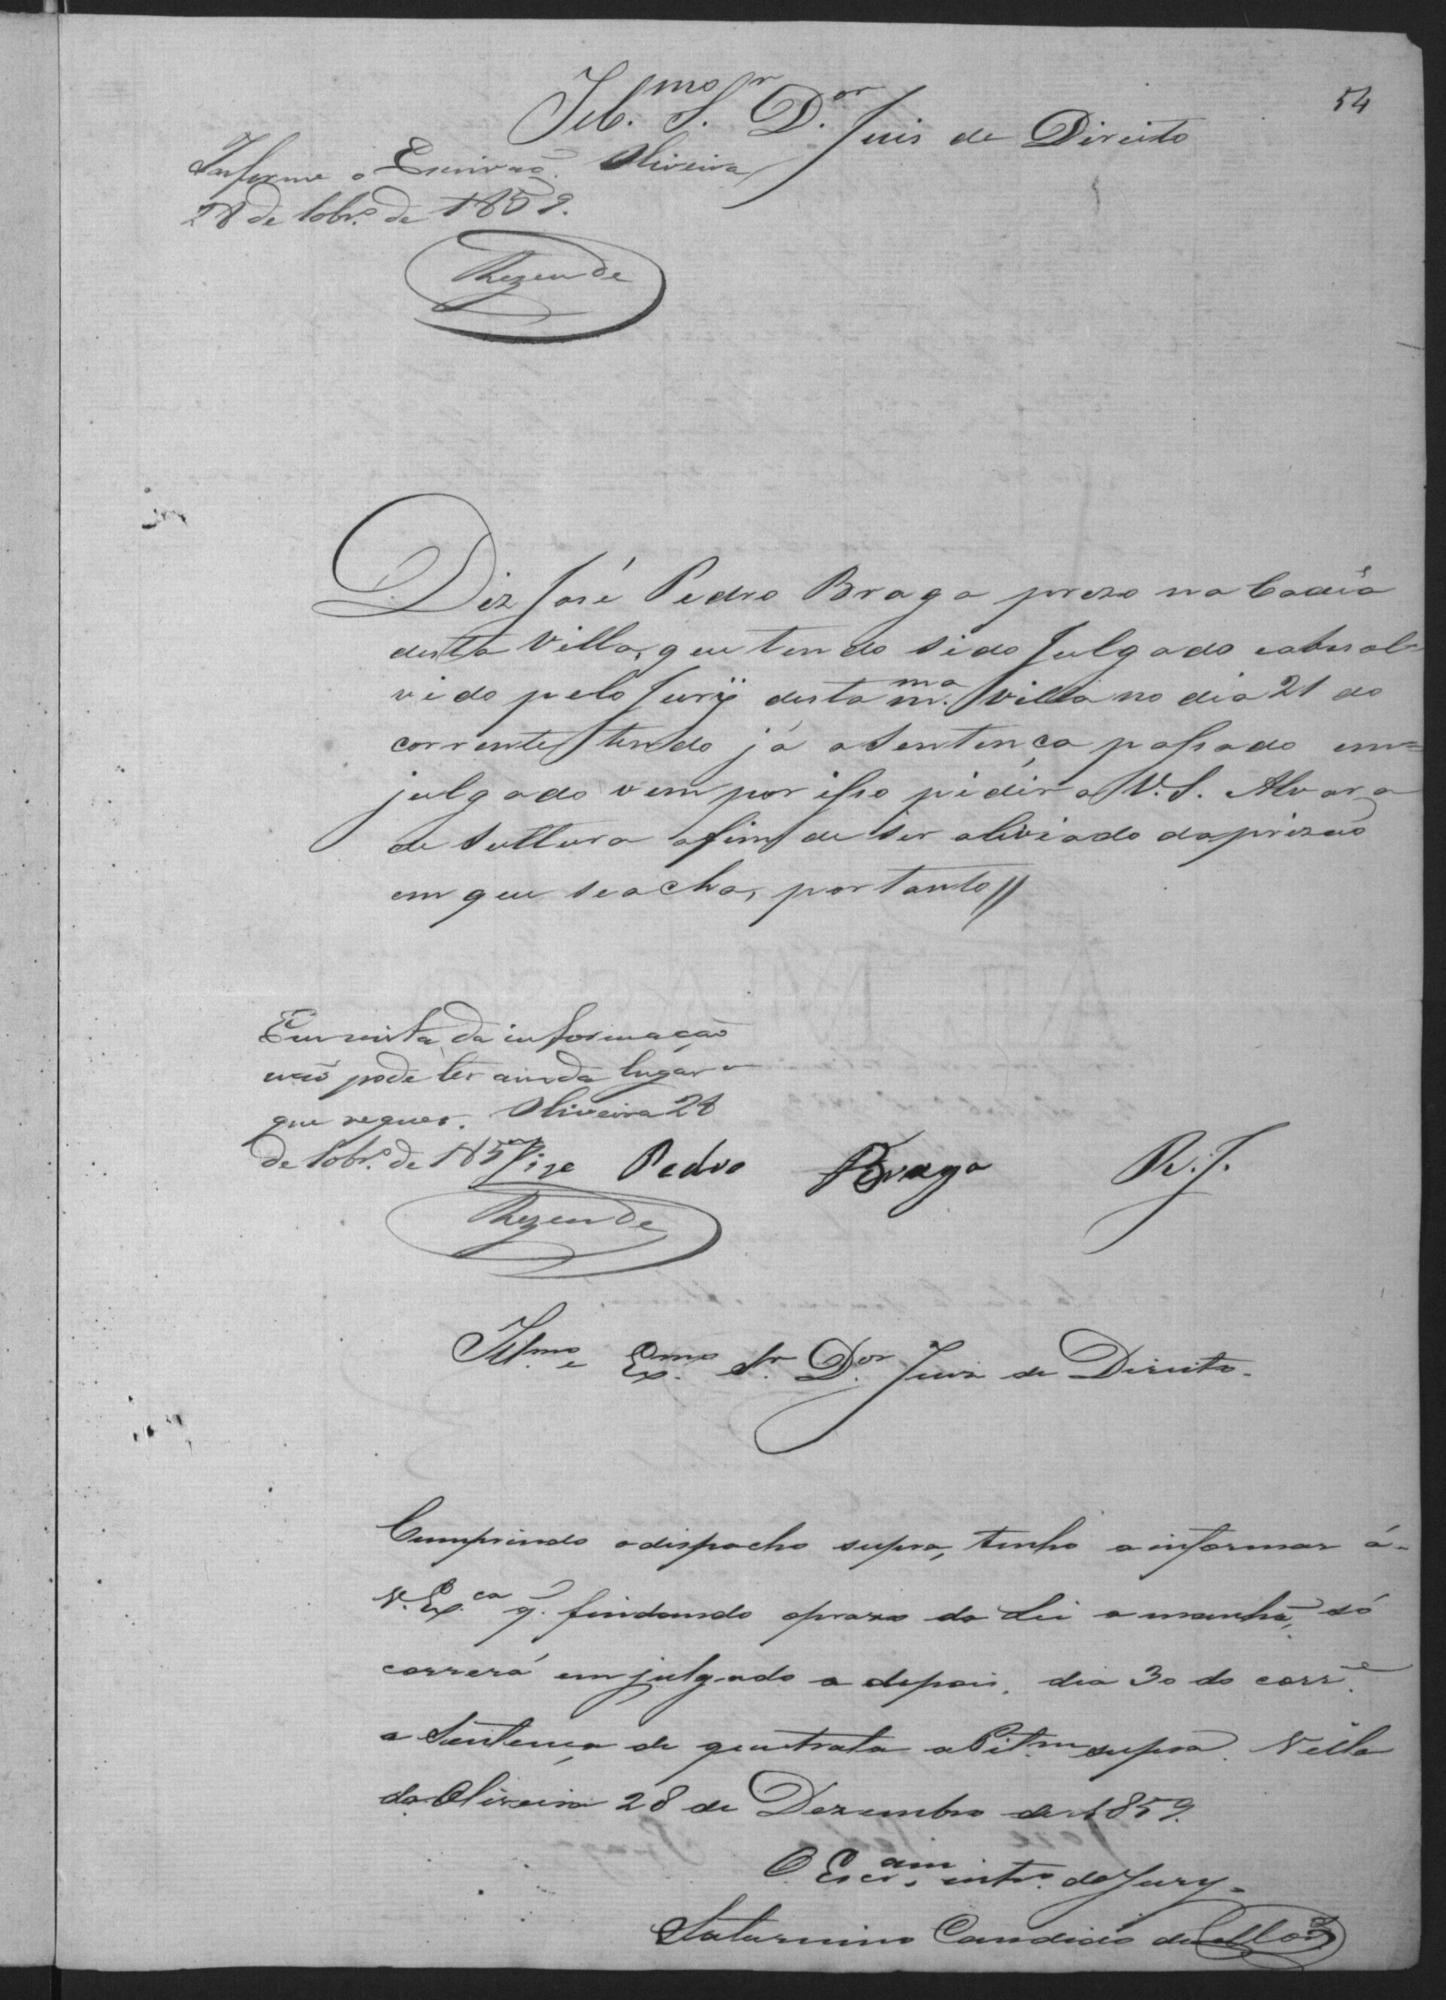 54
Ill.mo S.r D.or Juis de Direito
Informe o Escrivaõ. Oliveira
28 de 10br.o de 1859.
Rezende
Diz José Pedro Braga prezo na Cadêa
desta Villa, que tendo sido julgado e absol-
vido pelo Jury desta m.ma Villa no dia 21 do
corrente, tendo já a Sentença passado em=
julgado vem por isso pidir a V. S. Alvara
de Soltura afim de ser aliviado da prizaõ
em que se acha, por tanto //
Em vista da informação
naõ pode ter ainda lugar o
que requer. Oliveira 28
de 10br.o de 1859
Joze Pedro Braga
R. J.
Rezende
Ill.mo e Ex.mo Sr. D.or Juiz de Direito.
Cumprindo o dispacho supra, tenho a informar á-
V. Ex.ca q. findando o prazo da Lei a manhã, só
correrá em julgado a depois, dia 30 do corr.e
a Sentença de que trata a Pet.m supra. Villa
da Oliveira 28 de Dezembro de 1859.
O Escr.am intr.o do Jury-
Saturnino Candido de